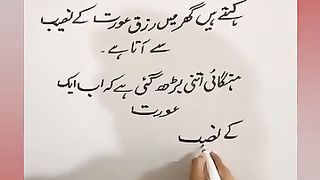 کہتے ہیں گھر میں رزق عورت کے نصیب
سے آتا ہے۔
مہنگائی اتنی بڑھ گئی ہے کہ اب ایک
عورت
کے نصیب